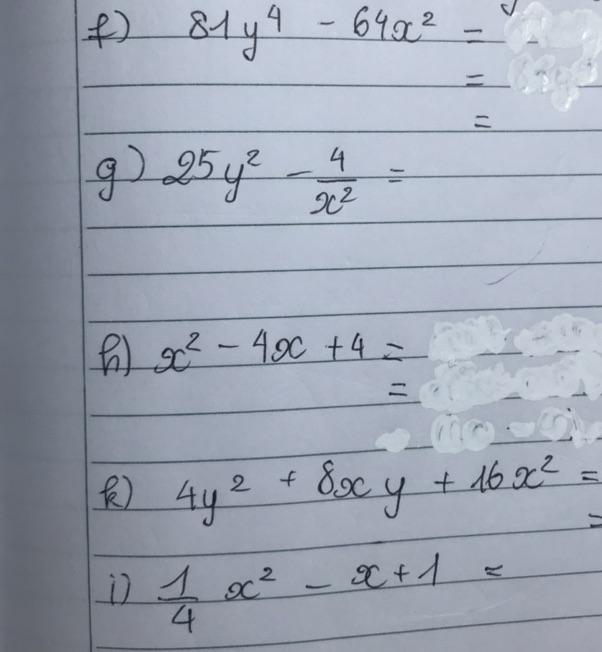 f) 81y⁴ - 64x² =
=
=
g) 25y² - 4/x² =
h) x² - 4x + 4 =
=
k) 4y² + 8xy + 16x² =
=
i) 1/4 x² - x + 1 =